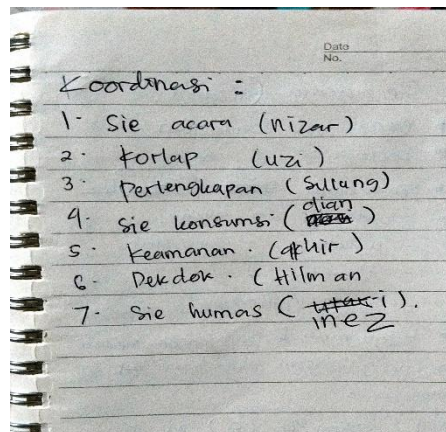 Date
No.
Koordinasi :
1. Sie acara (nizar)
2. Korlap (uzi)
3. Perlengkapan (Sulung)
4. Sie konsumsi (dian)
5. Keamanan. (akhir)
6. Dekdok. (Hilman
7. Sie humas (inez).